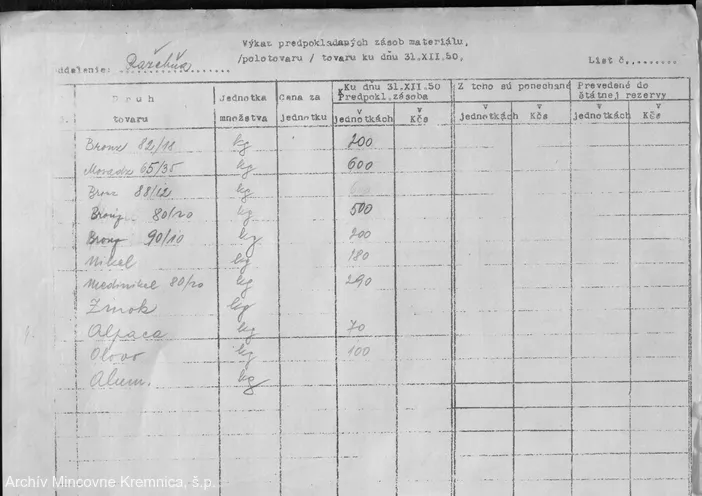 Výkaz predpokladaných zásob materiálu,
/polotovaru / tovaru ku dňu 31.XII.50,
ddelenie: Ražebňa List č.........
Druh tovaru Jednotka množstva Cena za jednotku Ku dňu 31.XII.50 Predpokl.zásoba v jednotkách v Kčs Z toho sú ponechané v jednotkách v Kčs Prevedené do štátnej rezervy v jednotkách v Kčs
82/18 kg 200
Mosadz 65/35 kg 600
88/12 kg
Bronz 80/20 kg 500
Bronz 90/10 kg 200
Nikel kg 180
80/20 kg 290
Zinok kg
Alpaca kg 70
Olovo kg 100
Alum. kg
Archív Mincovne Kremnica, š.p.